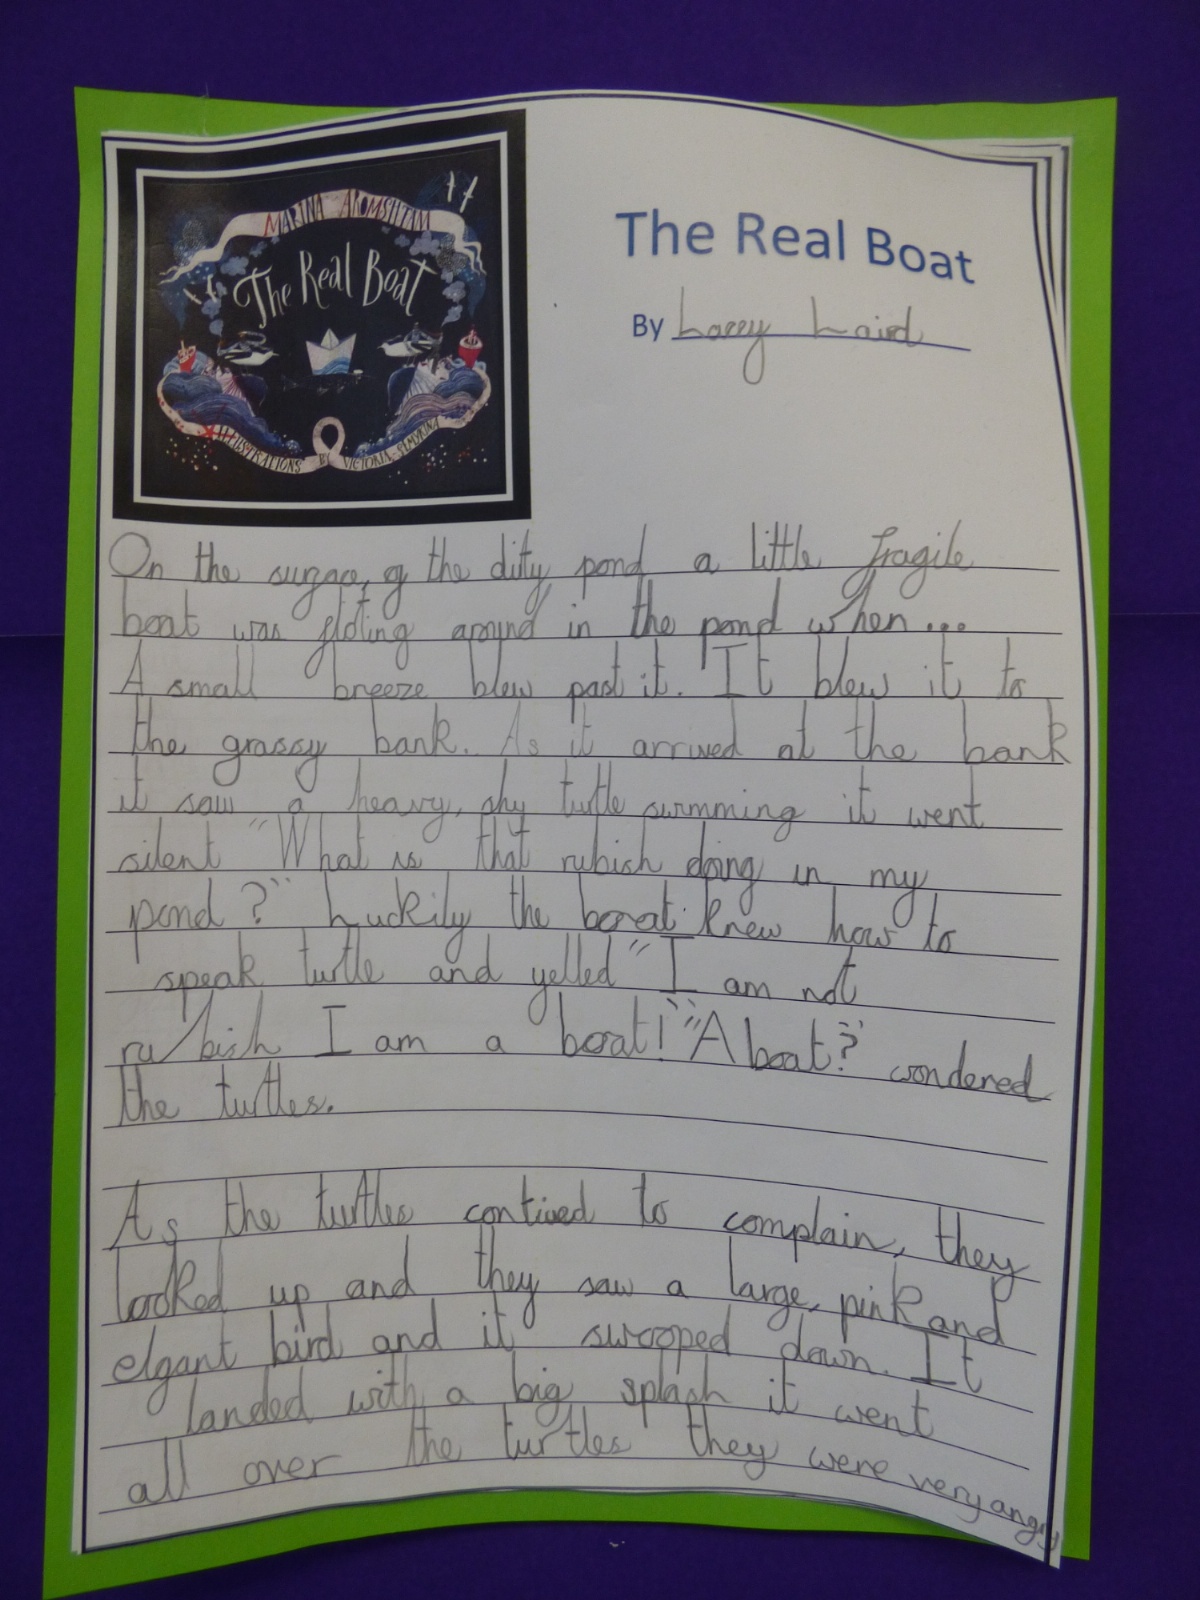 MARINA AROMSHTAM
The Real Boat
ILLUSTRATIONS BY VICTORIA SEMYKINA
The Real Boat
By Laird
On the surgace, og the dirty pond a little fragile
boat was floting around in the pond when...
A small breeze blew past it. It blew it to
the grassy bank. As it arrived at the bank
it saw a heavy, shy turtle swimming it went
silent "What is that rubish doing in my
pond?" Luckily the boat knew how to
speak turtle and yelled "I am not
rubish I am a boat!" "A boat?" wondered
the turtles.
As the turtles contived to complain, they
looked up and they saw a large, pink and
elgant bird and it swooped down. It
landed with a big splash it went
all over the turtles they were very angry